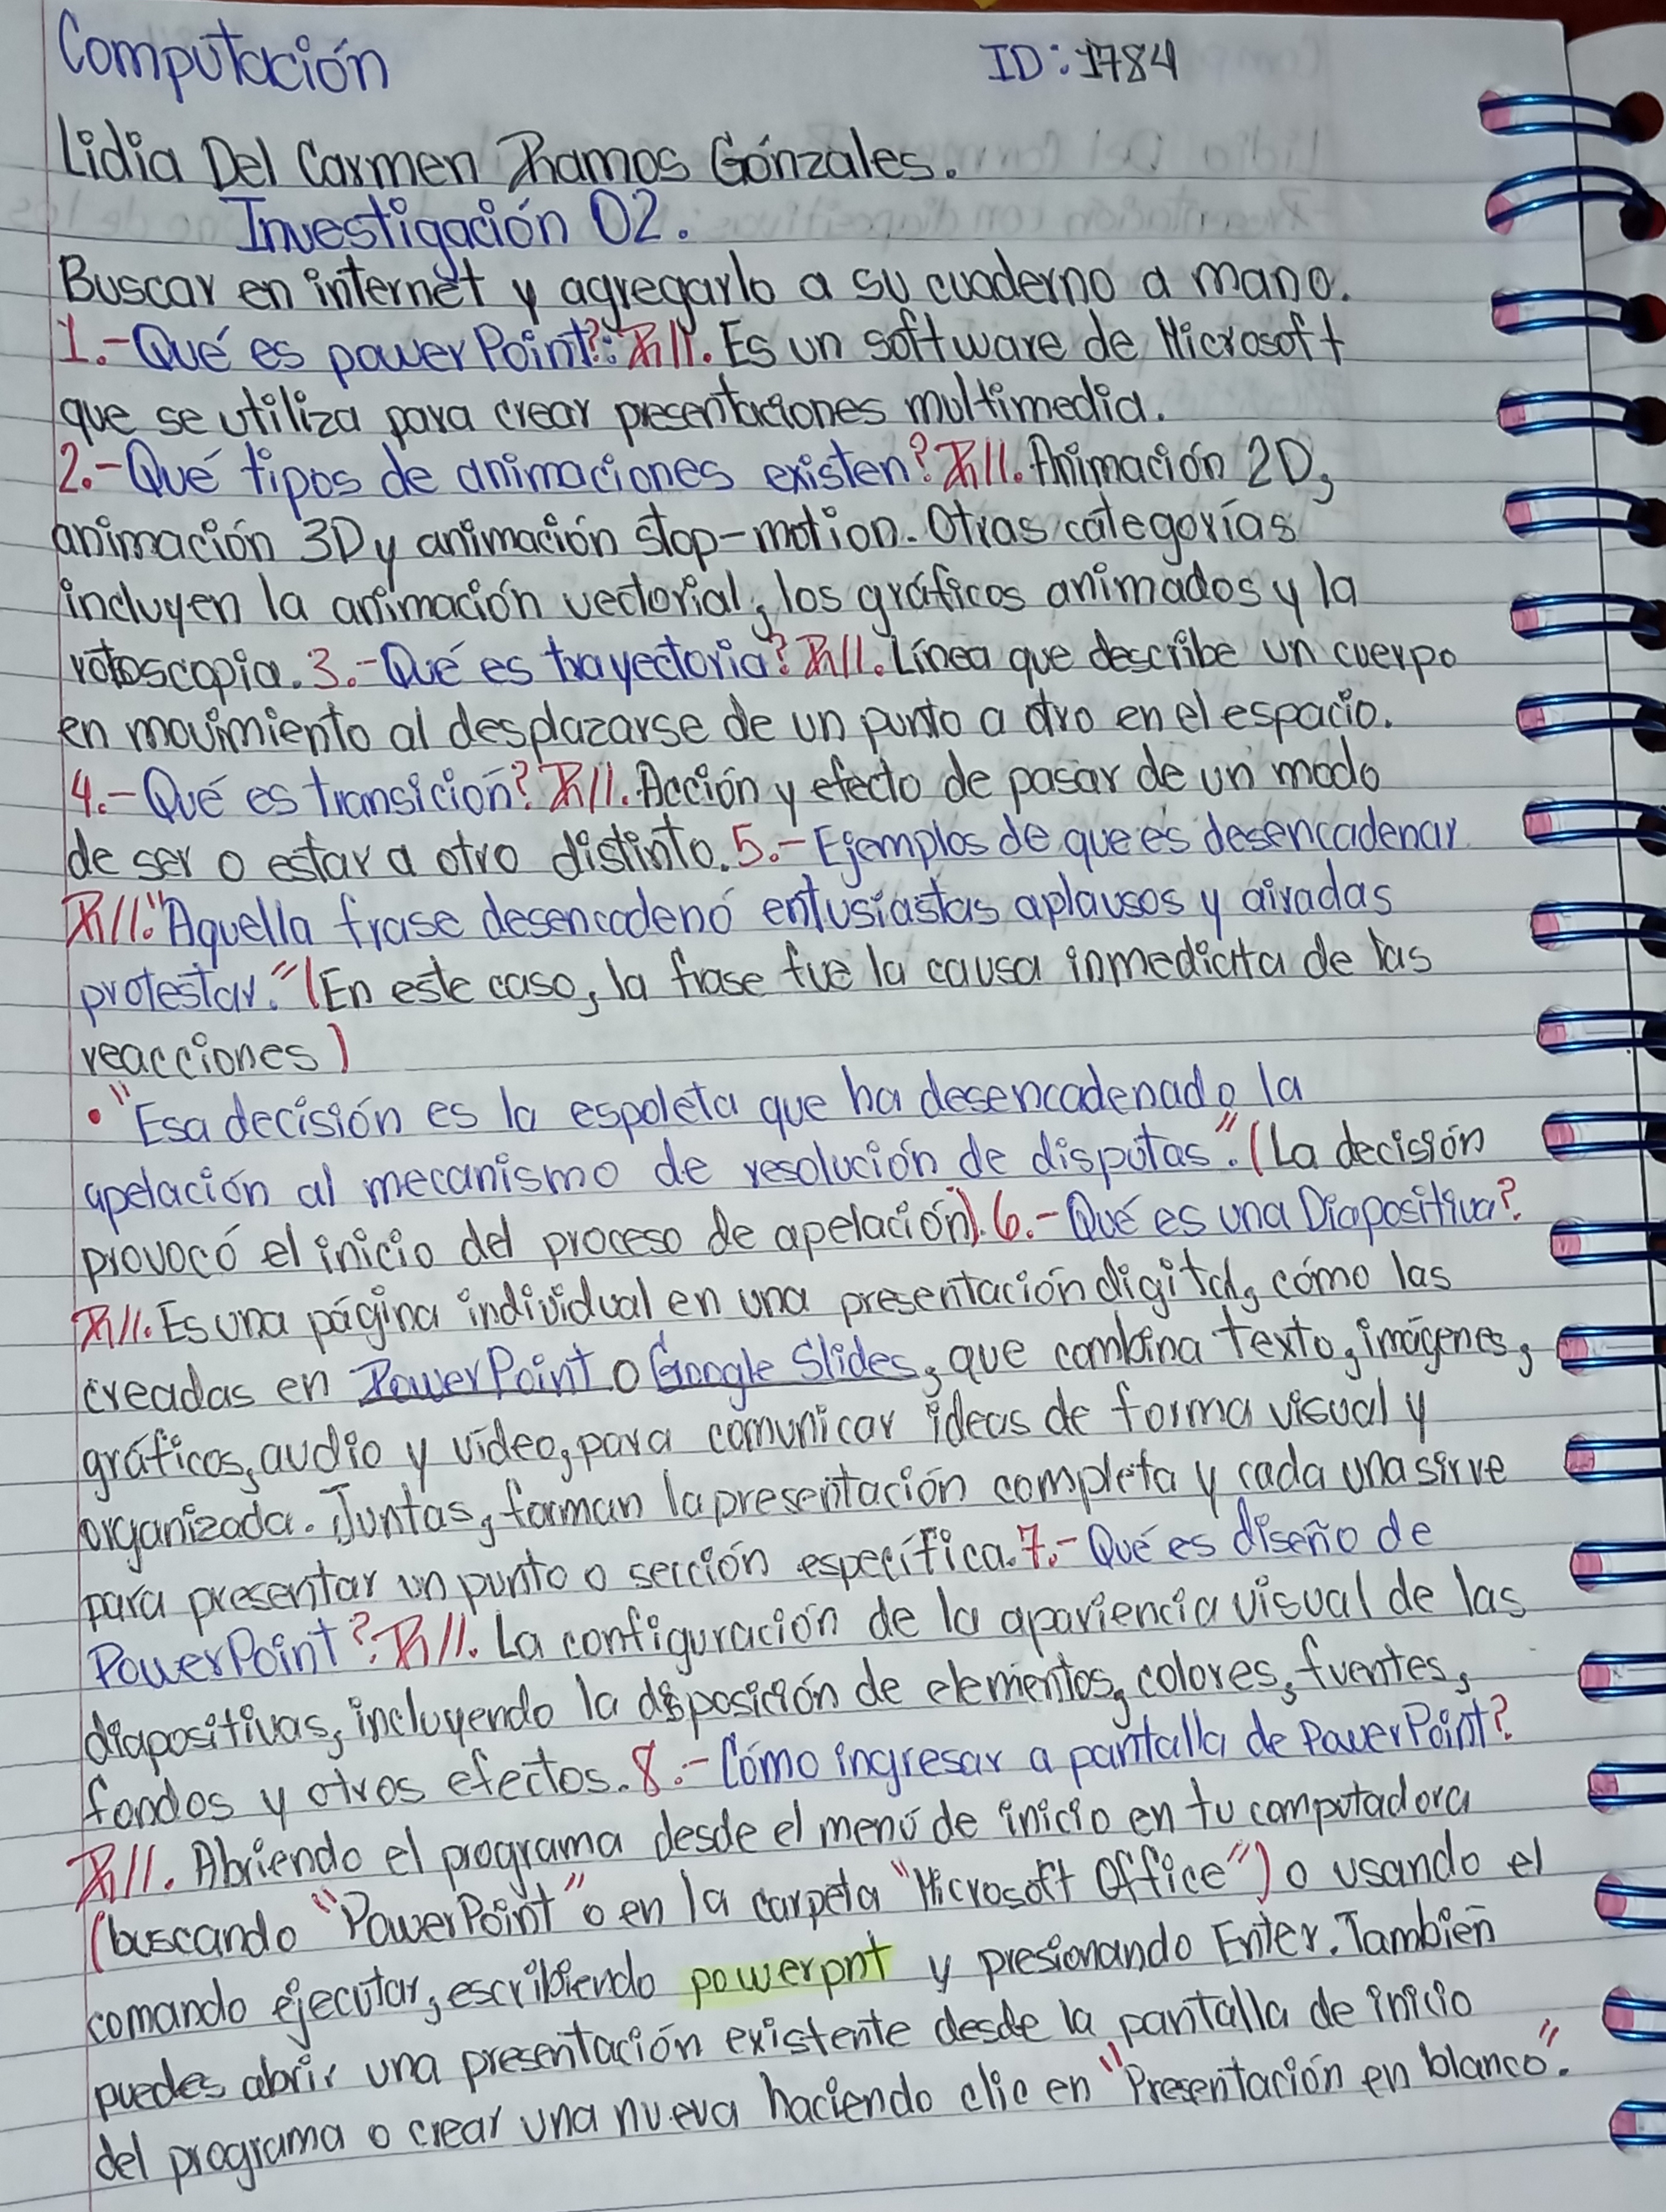 Computación ID: 1784
Lidia Del Carmen Ramos Gónzales.
Investigación 02.
Buscar en internet y agregarlo a su cuaderno a mano.
1.-Qué es power Point?: R//. Es un software de Microsoft
que se utiliza para crear presentaciones multimedia.
2.-Qué tipos de animaciones existen? R//. Animación 2D,
animación 3D y animación stop-motion. Otras categorías
incluyen la animación vectorial, los gráficos animados y la
rotoscopia. 3.-Qué es trayectoria? R//. Línea que describe un cuerpo
en movimiento al desplazarse de un punto a otro en el espacio.
4.-Qué es transición? R//. Acción y efecto de pasar de un modo
de ser o estar a otro distinto. 5.-Ejemplos de que es desencadenar
R//. "Aquella frase desencadenó entusiastas aplausos y airadas
protestar." (En este caso, la frase fue la causa inmediata de las
reacciones)
• "Esa decisión es la espoleta que ha desencadenado la
apelación al mecanismo de resolución de disputas". (La decisión
provocó el inicio del proceso de apelación). 6.-Qué es una Diapositiva?
R//. Es una página individual en una presentación digital, cómo las
creadas en PowerPoint o Google Slides, que combina texto, imágenes,
gráficos, audio y vídeo, para comunicar ideas de forma visual y
organizada. Juntas, forman la presentación completa y cada una sirve
para presentar un punto o sección específica. 7.-Qué es diseño de
PowerPoint? R//. La configuración de la apariencia visual de las
diapositivas, incluyendo la disposición de elementos, colores, fuentes,
fondos y otros efectos. 8.-Cómo ingresar a pantalla de PowerPoint?
R//. Abriendo el programa desde el menú de inicio en tu computadora
(buscando "PowerPoint" o en la carpeta "Microsoft Office") o usando el
comando ejecutar, escribiendo powerpnt y presionando Enter. También
puedes abrir una presentación existente desde la pantalla de inicio
del programa o crear una nueva haciendo clic en "Presentación en blanco".